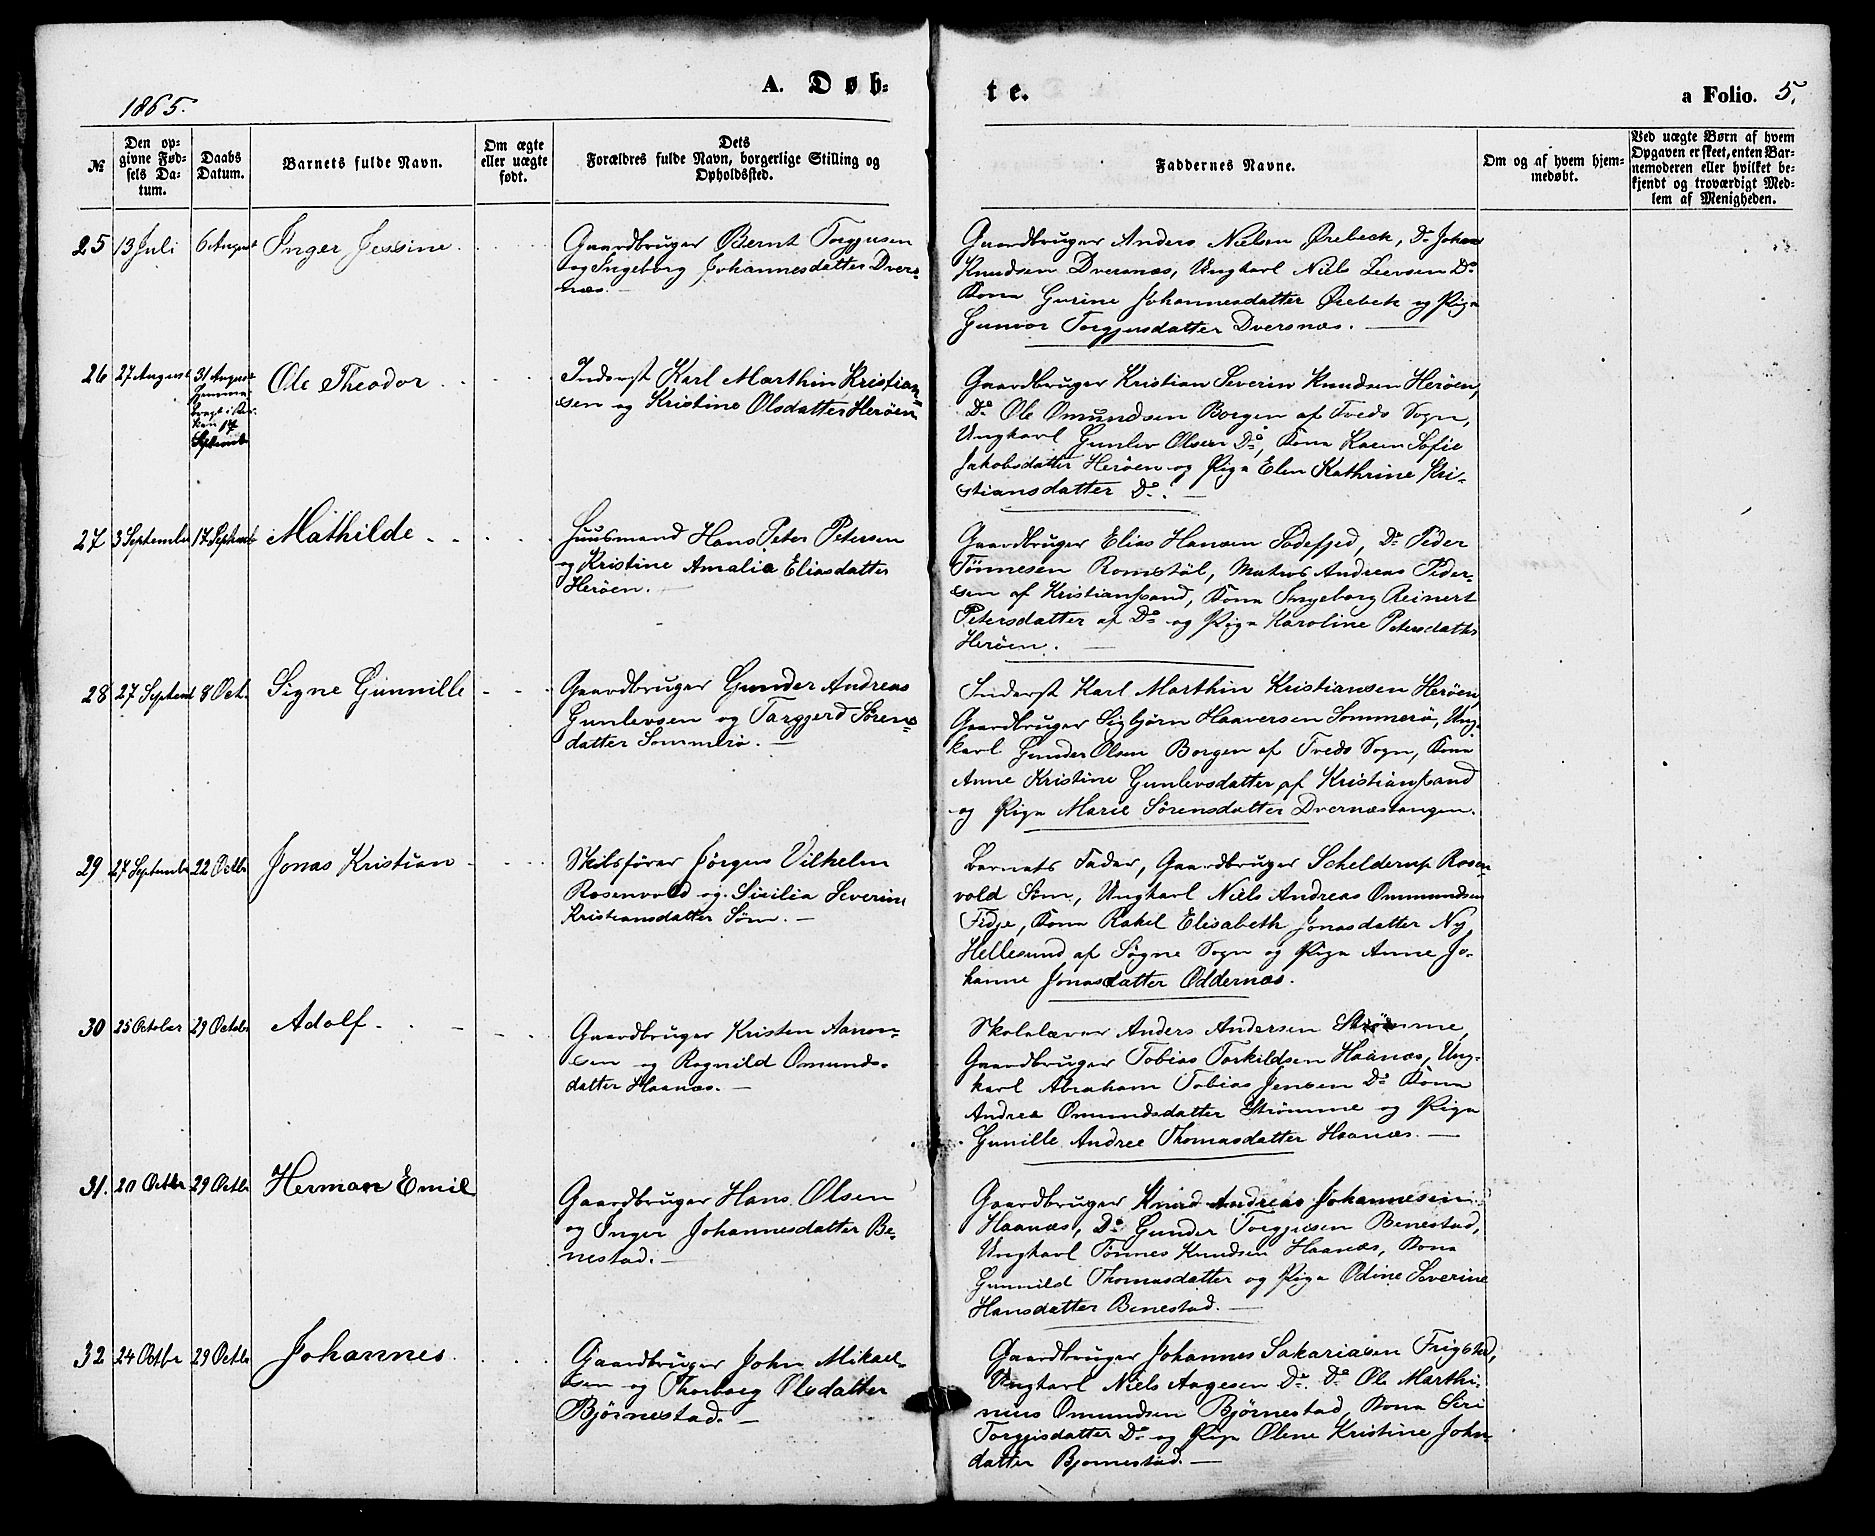 1865.
A. Døb-
te.
a Folio. 5.
№
Den opgivne Fødsels Datum.
Daabs Datum.
Barnets fulde Navn.
Om ægte eller uægte født.
Dets
Forældres fulde Navn, borgerlige Stilling og
Opholdssted.
Faddernes Navne.
Om og af hvem hjemmedøbt.
Ved uægte Børn af hvem
Opgaven er skeet, enten Barnemoderen
eller hvilket bekjendt
og troværdigt Medlem
af Menigheden.
25 13 Juli 6 August Inger Jessine
Gaardbruger Bernt Torgjusen
og Ingeborg Johannesdatter Dvers=
næs.
Gaardbruger Anders Nielsen Ørebeck, Do Johan
Knudsen Dversnæs, Ungkarl Niels Leevsen Do
Kona Gurine Johannesdatter Ørebeck og Piga
Gunvor Torgjusdatter Dversnæs.
26 27 August 31 August Ole Theodor
Hjemme
bragt i Kir
ken 17
September
Inderst Karl Marthin Kristian=
sen og Kristine Olsdatter Herøen
Gaardbruger Kristian Severin Knudsen Herøen,
Do Ole Omundsen Borgen af Tveds Sogn,
Ungkarl Gunlev Olsen Do, Kona Karen Sofie
Jakobsdatter Herøen og Piga Elen Kathrine Kri-
stiansdatter Do.
27 3 September 17 Septemb Mathilde
Huusmand Hans Peter Petersen
og Kristine Amalia Eliasdatter
Herøen.
Gaardbruger Elias Hansen Stodefjed, Do Peder
Tønnesen Romstøl, Matros Andreas Peder-
sen af Kristianssand, Kona Ingeborg Reinert
Petersdatter af Do og Piga Karoline Petersdatter
Herøen.
28 27 Septemb 8 Oct. Signe Gunnille
Gaardbruger Gunder Andreas
Gunlevsen og Targjerd Sørens=
datter Sommerø.
Inderst Karl Marthin Kristiansen Herøen,
Gaardbruger Sigbjørn Haaversen Sommerø, Ung-
karl Gunder Olsen Borgen af Tveds Sogn, Kona
Anne Kristine Gunlevsdatter af Kristianssand
og Piga Marie Sørensdatter Dvernæstangen.
29 27 September 22 Octbr Jonas Kristian
Skibsfører Jørgen Vilhelm
Rosenvold og Sicilia Severine
Kristiansdatter Søm.
Barnets Fader, Gaardbruger Schelderup Rosen-
vold Søm, Ungkarl Niels Andreas Ommundsen
Fidje, Kona Rakel Elisabeth Jonasdatter Ny
Hellesund af Søgne Sogn og Piga Anne Jo-
hanne Jonasdatter Oddernæs.
30 25 October 29 Octobr Adolf
Gaardbruger Kristen Aanon-
sen og Rognild Omunds-
datter Haanæs.
Skolelærer Anders Andersen Strømme,
Gaardbruger Tobias Torkildsen Haanæs, Ung-
karl Abraham Tobias Jensen Do Kona
Andrea Omundsdatter Strømme og Piga
Gunille Andree Thomasdatter Haanæs.
31. 20 Octbr 29 Octbr Herman Emil
Gaardbruger Hans Olsen
og Inger Johannesdatter Be-
nestad.
Gaardbruger Knud Andreas Johannesen
Haanæs, Do Gunder Torgjusen Benestad,
Ungkarl Tønnes Knudsen Haanæs, Kona
Gunnild Thomasdatter og Piga Odine Severine
Hansdatter Benestad.
32 24 Octbr 29 Octbr Johannes
Gaardbruger John Mikael-
sen og Thorborg Olsdatter
Bjørnestad.
Gaardbruger Johannes Sakariasen Frigstad,
Ungkarl Niels Aagesen Do. Do Ole Marthi-
nius Omundsen Bjørnestad, Kona Seri
Torgjisdatter Do og Piga Olene Kristine John-
datter Bjornestad.